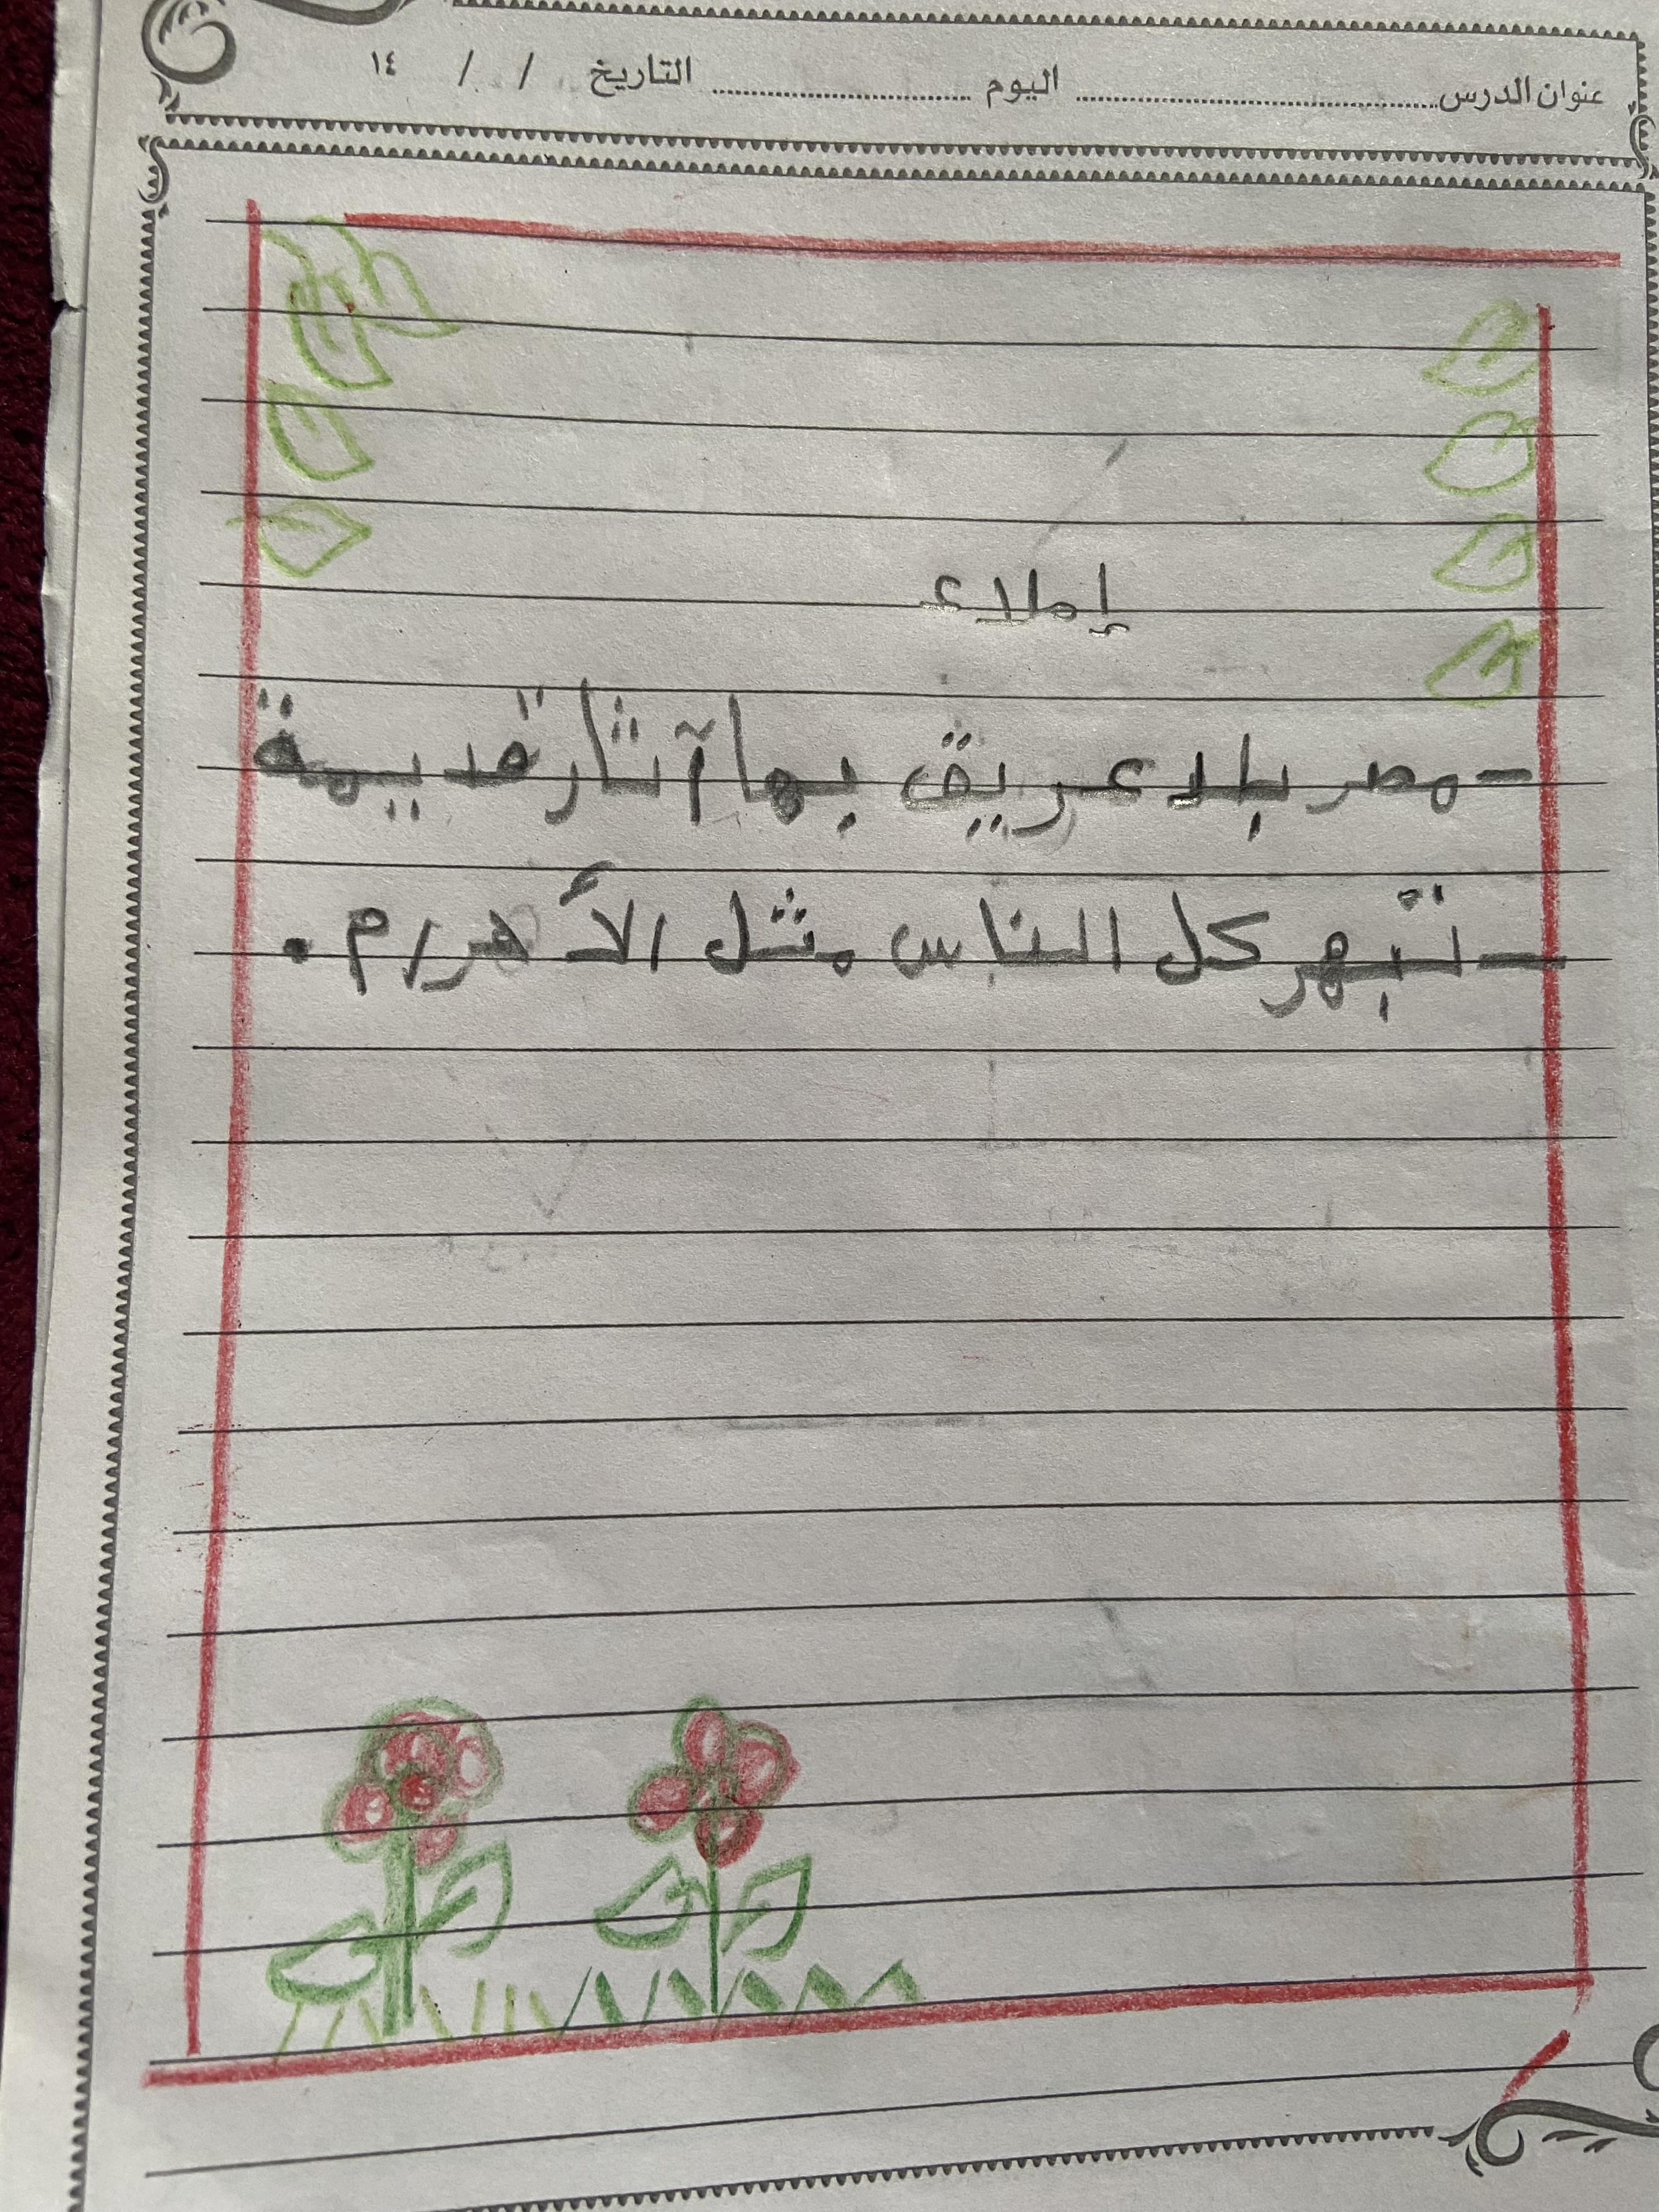 عنوان الدرس ........ اليوم ........ التاريخ / / ١٤
إملاء
- مصر بلد عريق بها آثار قديمة
- تبهر كل الناس مثل الأهرام .